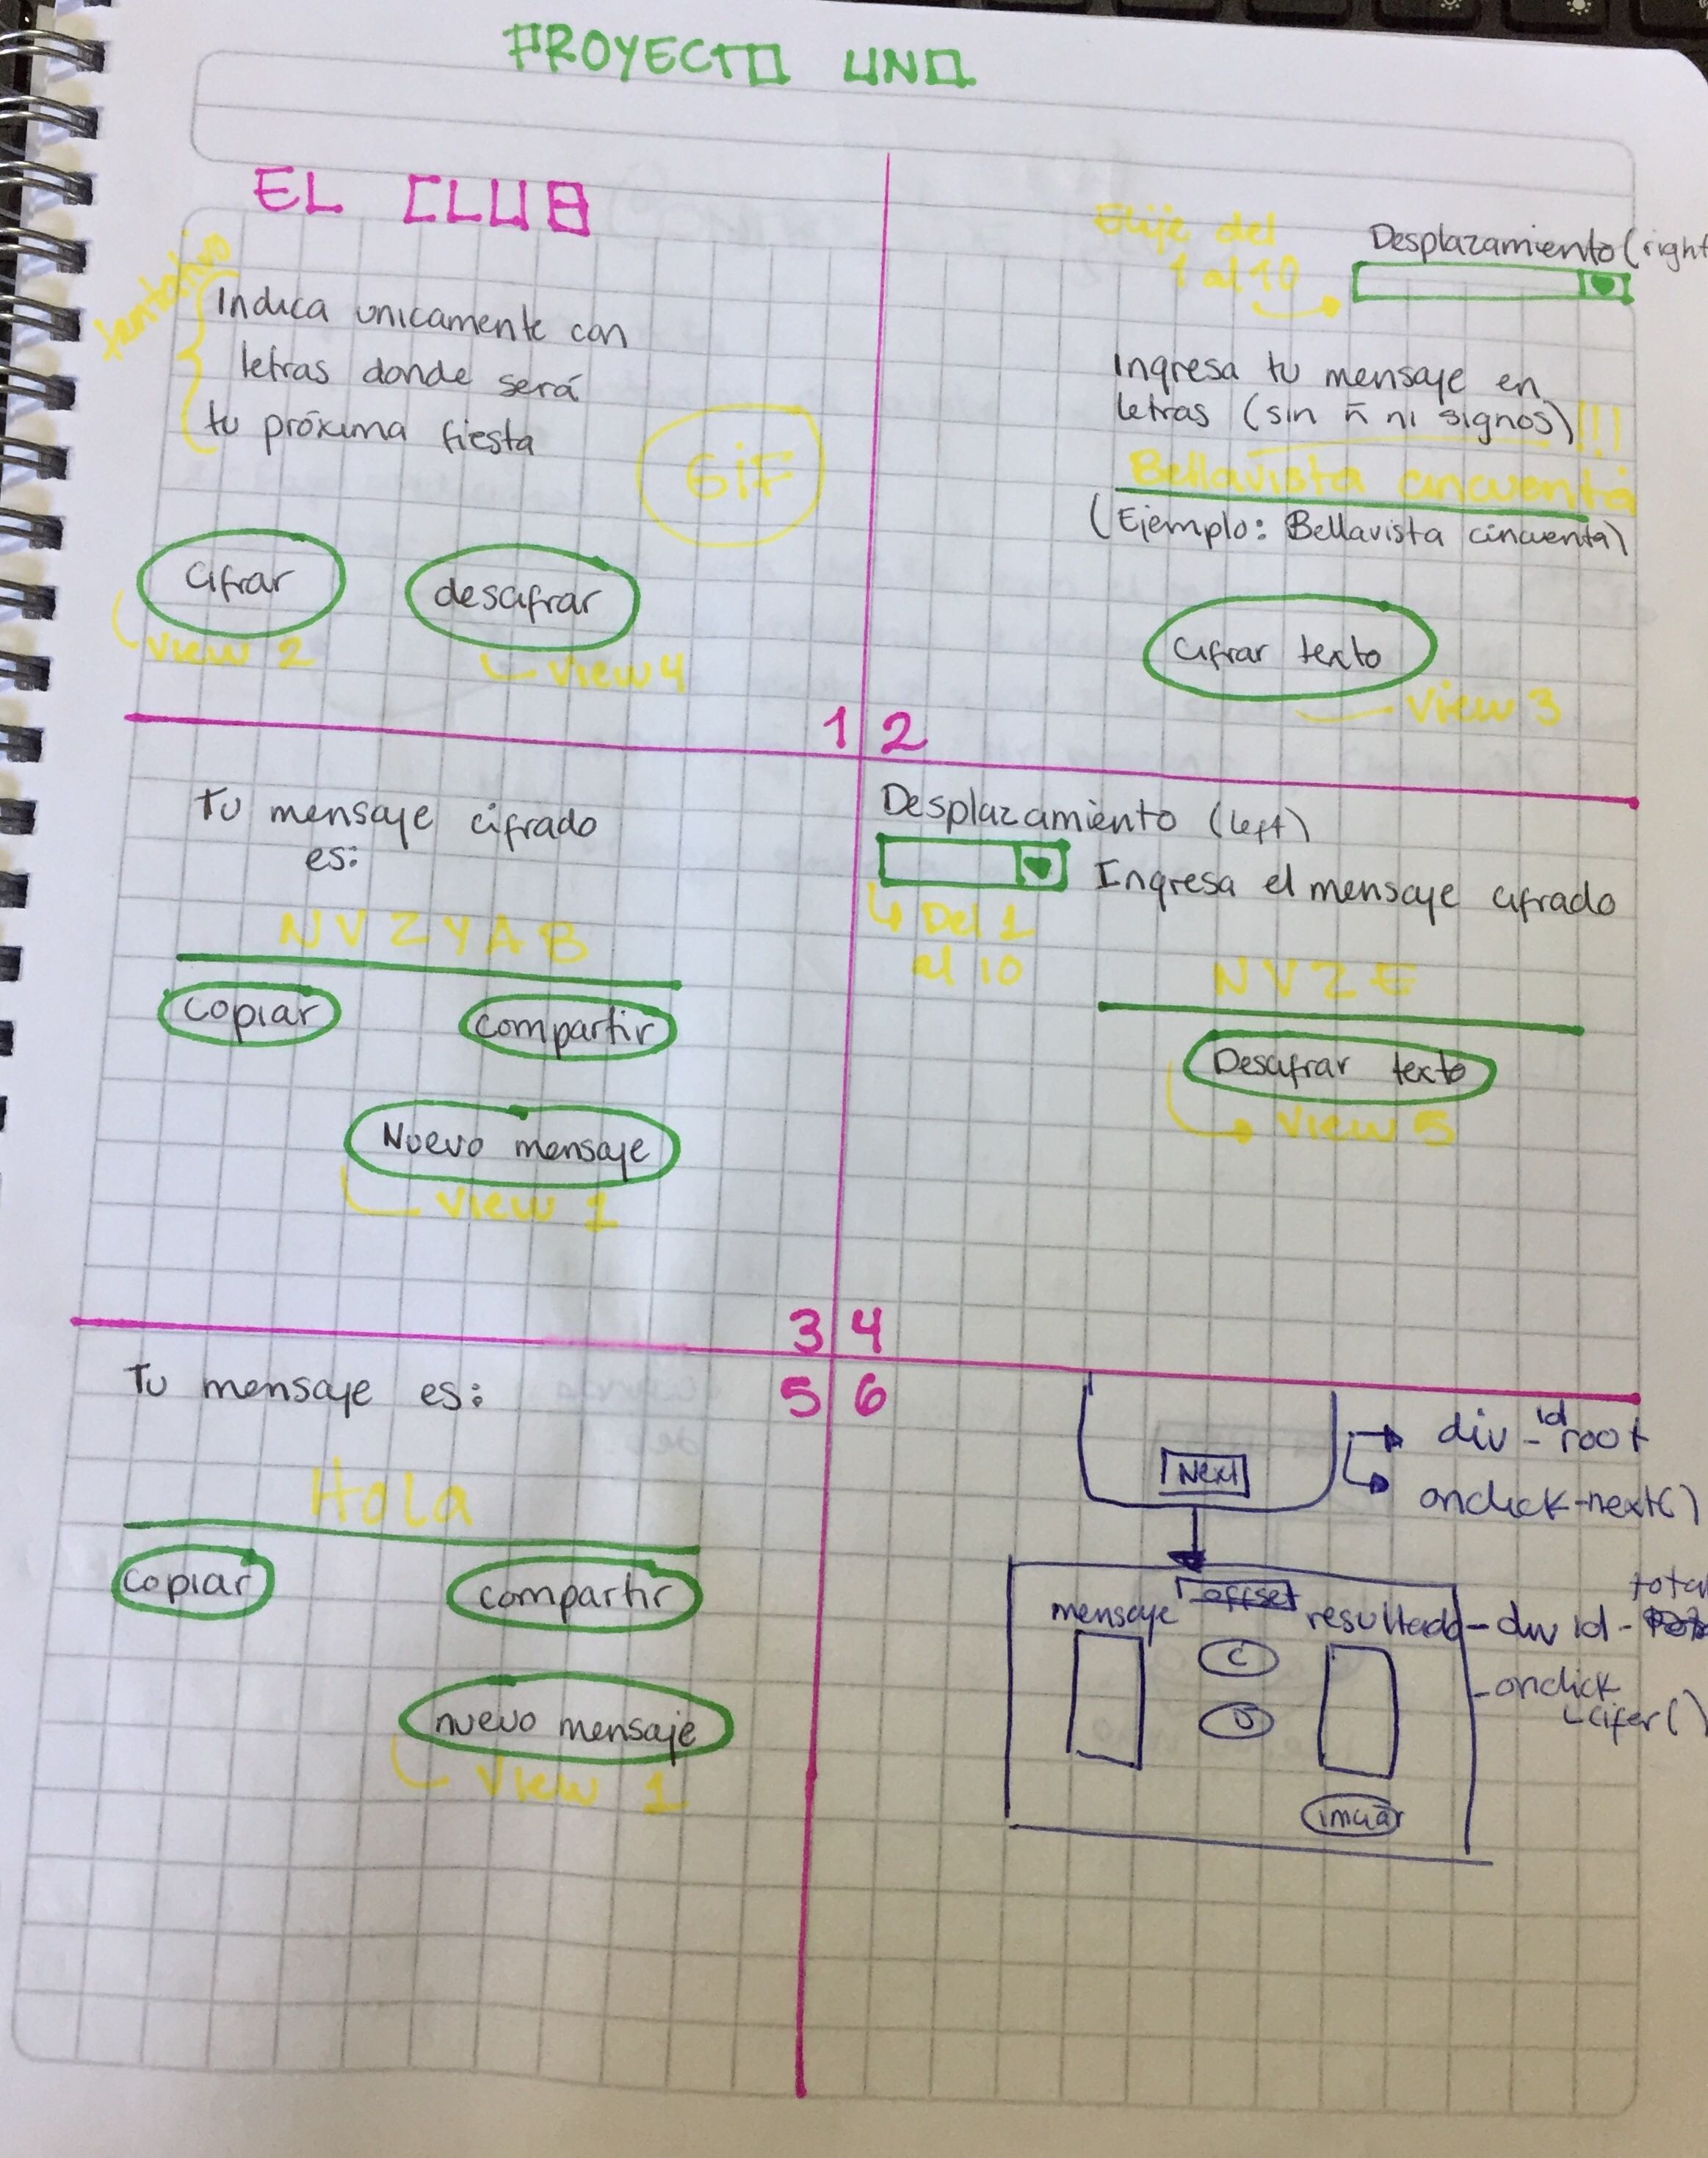 PROYECTO UNO
EL CLUB
tentativo
Indica unicamente con
letras donde será
tu próxima fiesta
GiF
Cifrar
descifrar
View 2
View 4
1
Elije del
1 al 10
Desplazamiento (right
Ingresa tu mensaje en
letras (sin ñ ni signos)!!!
Bellavista cincuenta
(Ejemplo: Bellavista cincuenta)
Cifrar texto
View 3
2
Tu mensaje cifrado
es:
NVZYAB
copiar
compartir
Nuevo mensaje
View 1
3
Desplazamiento (left)
Ingresa el mensaje cifrado
Del 1
al 10
NVZE
Descifrar texto
View 5
4
Tu mensaje es:
5
Hola
copiar
compartir
nuevo mensaje
View 1
6
Next
div - id root
onclick - next()
mensaje
offset
resultado - div id - total
C
D
- onclick
cifer()